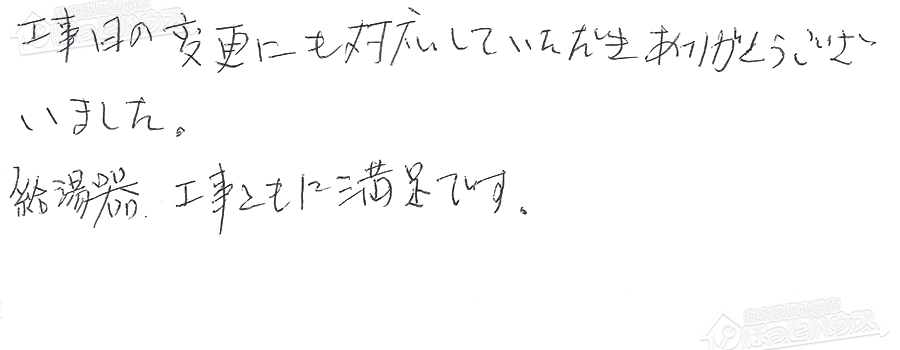 工事日の変更にも対応していただきありがとうござ
いました。
給湯器、工事ともに満足です。
住宅設備専門店
ほっとハウス